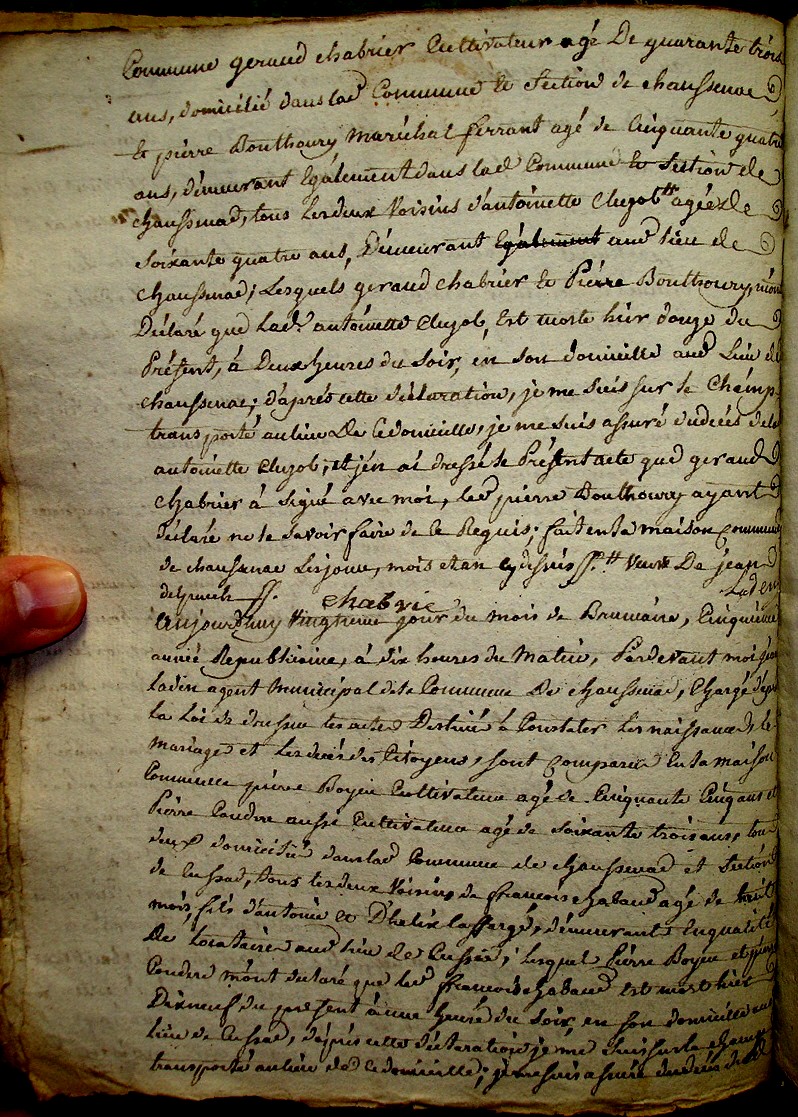 Commune geraud chabrier Cultivateur agé De quarante trois
ans, domicilié dans lad Commune et Section de chaussenac
et pierre Bouthoury Maréchal ferrant agé de Cinquante quatre
ans, demeurant Egalement dans lad Commune et Section de
chaussenac, tous Les deux Voisins d'antoinette Cluzol agée De
Soixante quatre ans, Demeurant Egalement aud lieu de
chaussenac; Lesquels geraud chabrier et Pierre Bouthoury, mon
Déclaré que Lad. antoinette Cluzol, Est morte hier douze du
Présent, à Deux heures du Soir, en son domicille aud Lieu de
chaussenac; d'après cette déclaration, je me suis sur le Champ
transporté au lieu De ce domicille, je me suis assuré du décés de la
antoinette Cluzol; et j'en ai dressé le Présent acte que geraud
chabrier à Signé avec moi, led pierre Bouthoury ayant
déclaré ne le Savoir faire de ce Requis; fait en la maison Commune
de chaussenac Les jour, mois et an cy dessus Veuve De jean
chabrie Ladin
Aujourd'huy Vingtieme jour du mois de Brumaire, Cinquieme
année Republicaine, à dix heures du Matin, Pardevant moi jean
Ladin agent Municipal de la Commune De chaussenac, Chargé d'après
la Loi de dresser les actes Destiné à Constater Les naissances, les
mariages et Les décés des Citoyens, sont Comparu En la maison
Commune pierre Boyer Cultivateur agé de Cinquante Cinq ans et
Pierre Coudere aussi Cultivateur agé de Soixante trois ans, tous
deux domicilié dans lad Commune de chaussenac et Section
de Cussac, tous Les deux Voisins de francois chabaud agé de huit
mois, fils d'antoine et D'helix Laffarge, demeurant En qualité
De Locataire aud lieu de Cussac; lesquel Pierre Boyer et pierre
Coudere m'ont declaré que led francois chabaud Est mort hier
Dixneuf du présent à une heure du Soir, en son domicille aud
lieu de Cussac, d'après cette déclaration je me Suis sur le champ
transporté au lieu de ce domicille; je me suis assuré du décés dud